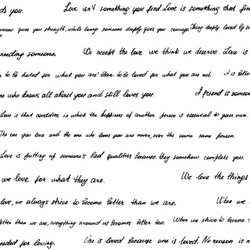 ds you. Love isn't something you find. Love is something that find
someone gives you strength, while loving someone deeply gives you courage. Being deeply loved by so
nnecting someone. We accept the love we think we deserve. Love is
to be hated for what you are than to be loved for what you are not. It is better
one who knows all about you and still loves you. A friend is someon
Love is that condition in which the happiness of another person is essential to your own.
The one you love and the one who loves you are never, ever the same person.
Love is putting of someone's bad qualities because they somehow complete you.
we love for what they are. We love the things
love, we always strive to become better than we are. When we
better than we are, everything around us becomes better too. When we strive to become
needed for loving. One is loved because one is loved. No reason is n